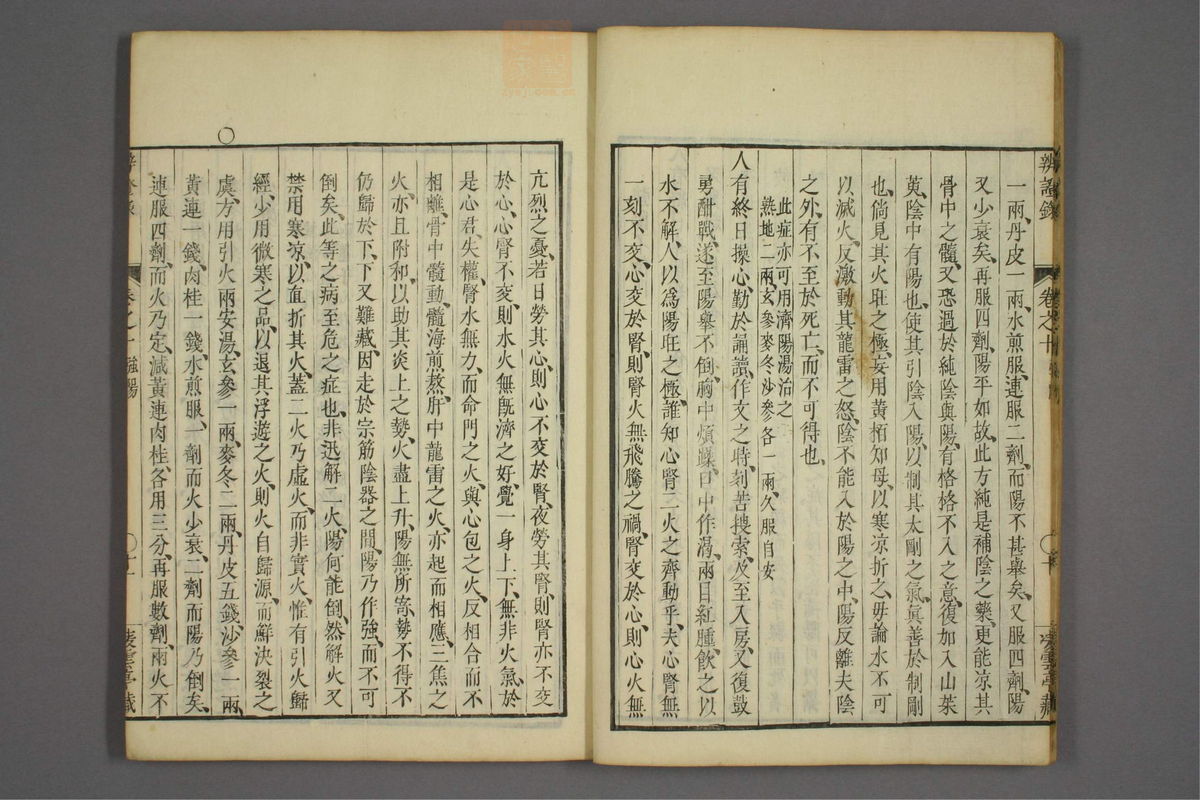 辨證錄 卷之十
一兩丹皮一兩水煎服連服二劑而陽不甚舉矣又服四劑陽
又少衰矣再服四劑陽平如故此方純是補陰之藥更能凉其
骨中之髓又恐過於純陰與陽有格格不入之意復加入山茱
萸陰中有陽也使其引陰入陽以制其太剛之氣真善於制剛
也倘見其火旺之極妄用黃柏知母以寒凉折之毋論水不可
以滅火反激動其龍雷之怒陰不能入於陽之中陽反離夫陰
之外有不至於死亡而不可得也
此症亦可用濟陽湯治之
熟地二兩玄參麥冬沙參各一兩久服自安
人有終日操心勤於誦讀作文之時刻苦搜索及至入房又復鼓
勇酣戰遂至陽舉不倒胸中煩躁口中作渴兩目紅腫飲之以
水不解人以爲陽旺之極誰知心腎二火之齊動乎夫心腎無
一刻不交心交於腎則腎火無飛騰之禍腎交於心則心火無
亢烈之憂若日勞其心則心不交於腎夜勞其腎則腎亦不交
於心心腎不交則水火無旣濟之好覺一身上下無非火氣於
是心君失權腎水無力而命門之火與心包之火反相合而不
相離骨中髓動髓海煎熬肝中龍雷之火亦起而相應三焦之
火亦且附和以助其炎上之勢火盡上升陽無所寄勢不得不
仍歸於下下又難藏因走於宗筋陰器之間陽乃作強而不可
倒矣此等之病至危之症也非迅解二火陽何能倒然解火又
禁用寒凉以直折其火蓋二火乃虛火而非實火惟有引火歸
經少用微寒之品以退其浮遊之火則火自歸源而鮮決裂之
虞方用引火兩安湯玄參一兩麥冬二兩丹皮五錢沙參一兩
黃連一錢肉桂一錢水煎服一劑而火少衰二劑而陽乃倒矣
連服四劑而火乃定減黃連肉桂各用三分再服數劑兩火不
卷之十 強陽